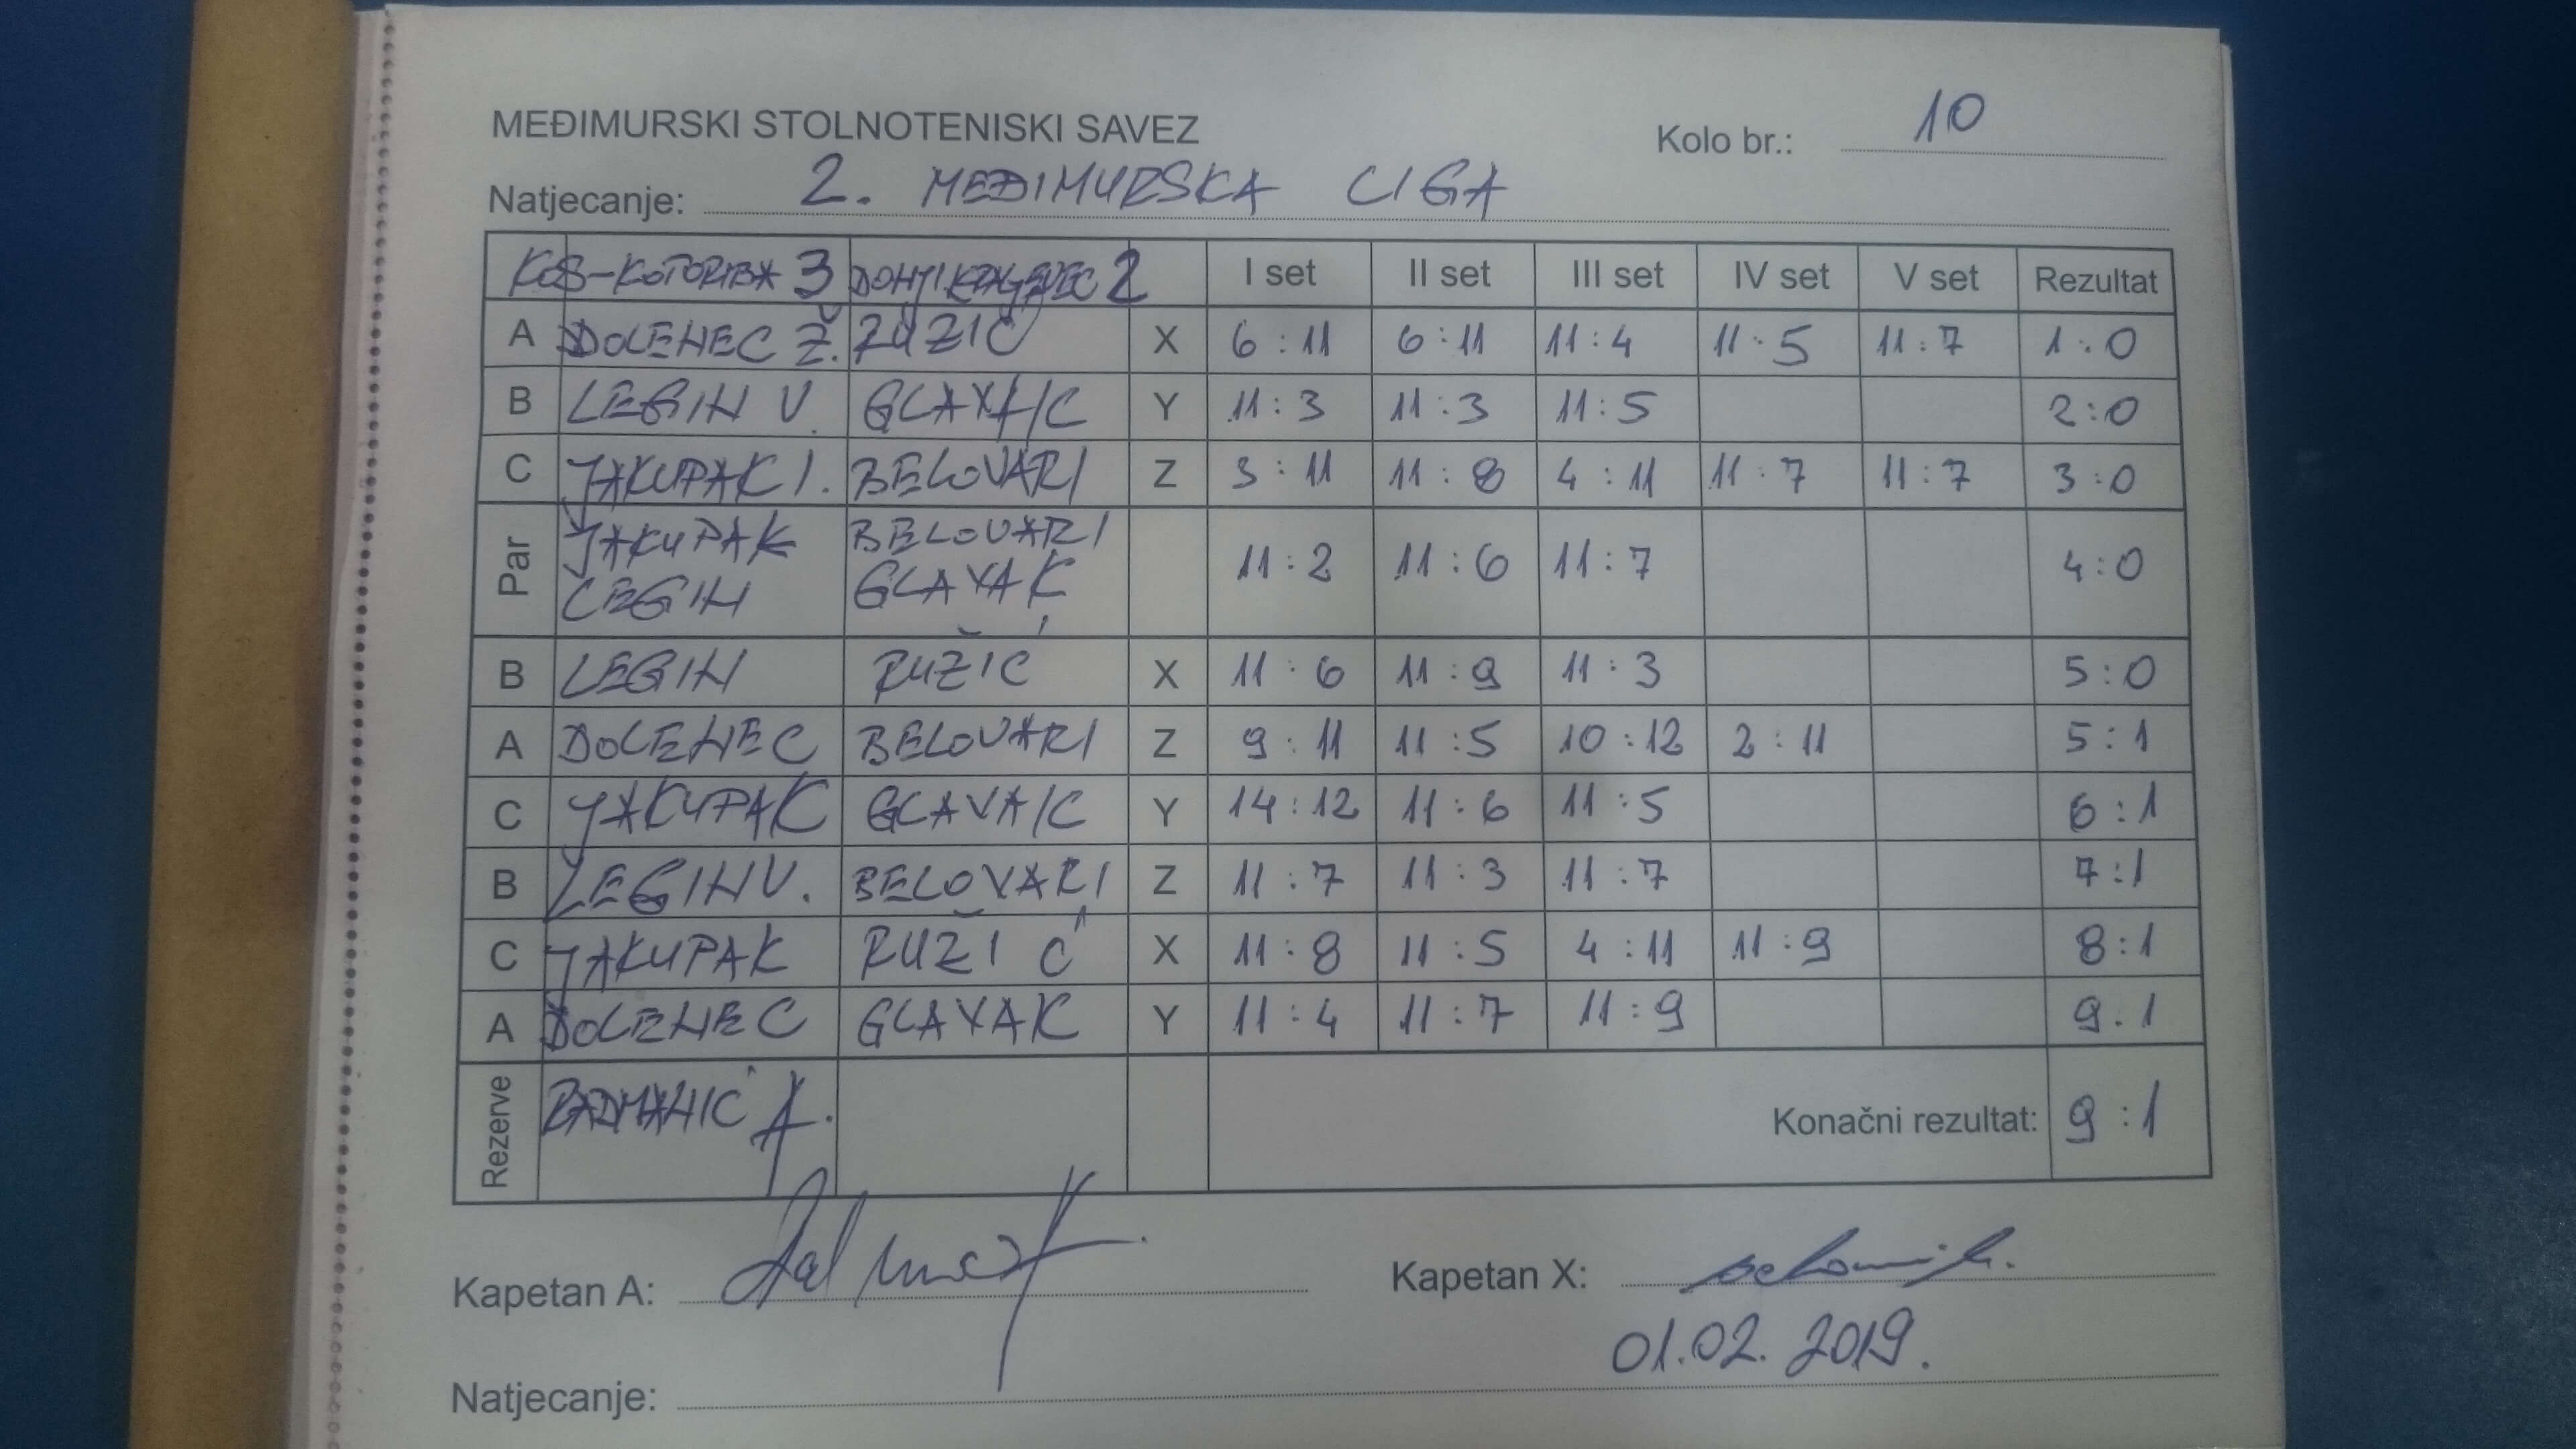 MEĐIMURSKI STOLNOTENISKI SAVEZ Kolo br.: 10
Natjecanje: 2. MEĐIMURSKA LIGA
KOS-KOTORIBA 3 DONJI KRALJEVEC 2 I set II set III set IV set V set Rezultat
A DOLENEC Ž. RUŽIĆ X 6:11 6:11 11:4 11:5 11:7 1:0
B LEGIN V. GLAVAK Y 11:3 11:3 11:5 2:0
C JAKUPAK I. BELOVARI Z 3:11 11:8 4:11 11:7 11:7 3:0
Par JAKUPAK LEGIN BELOVARI GLAVAK 11:2 11:6 11:7 4:0
B LEGIN RUŽIĆ X 11:6 11:9 11:3 5:0
A DOLENEC BELOVARI Z 9:11 11:5 10:12 2:11 5:1
C JAKUPAK GLAVAK Y 14:12 11:6 11:5 6:1
B LEGIN V. BELOVARI Z 11:7 11:3 11:7 7:1
C JAKUPAK RUŽIĆ X 11:8 11:5 4:11 11:9 8:1
A DOLENEC GLAVAK Y 11:4 11:7 11:9 9:1
Rezerve RADMANIĆ A. Konačni rezultat: 9:1
Kapetan A: Kapetan X:
01.02.2019.
Natjecanje: